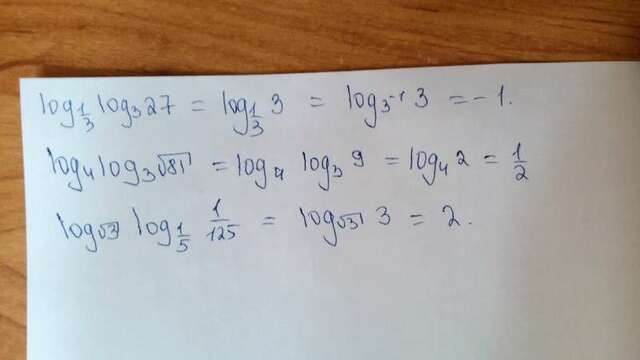 log_{1/3} log_3 27 = log_{1/3} 3 = log_{3^{-1}} 3 = -1.
log_4 log_3 √81 = log_4 log_3 9 = log_4 2 = 1/2
log_{√3} log_{1/5} 1/125 = log_{√3} 3 = 2.